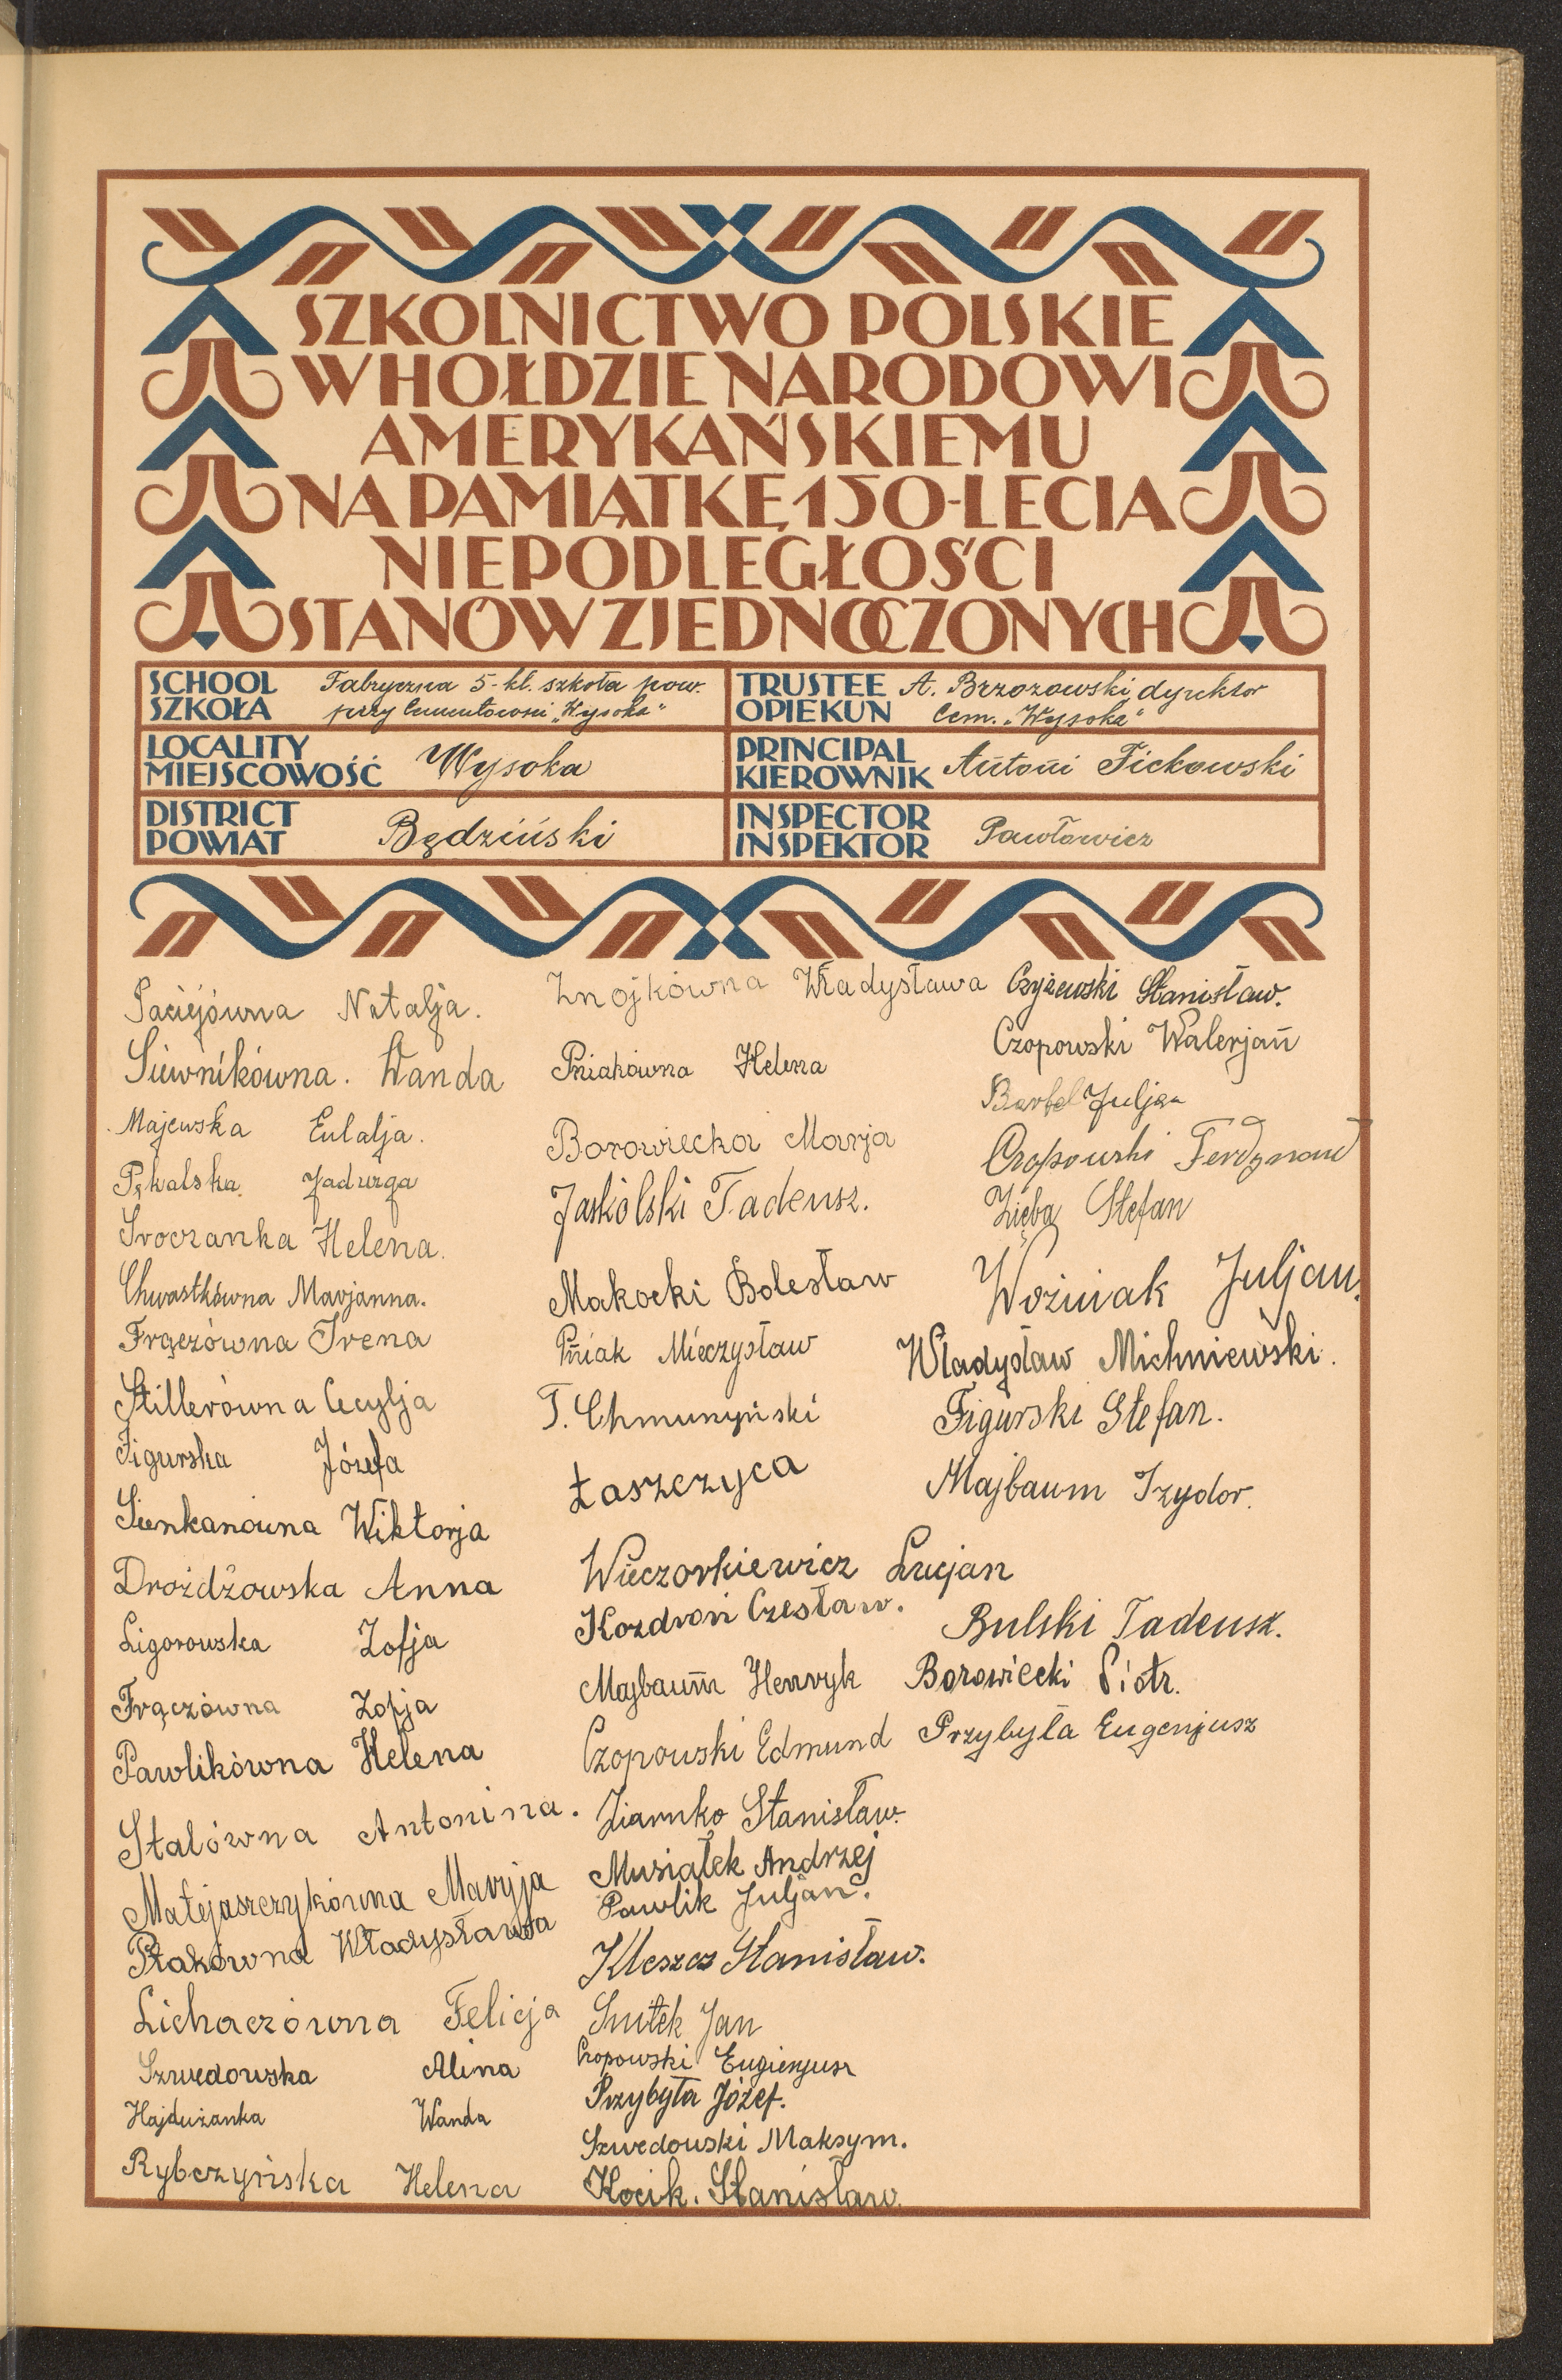 SZKOLNICTWO POLSKIE
W HOŁDZIE NARODOWI
AMERYKAŃSKIEMU
NA PAMIĄTKĘ 150-LECIA
NIEPODLEGŁOŚCI
STANÓW ZJEDNOCZONYCH
SCHOOL
SZKOŁA
Fabryczna 5-kl. szkoła pow.
przy Cementowni „Wysoka"
TRUSTEE
OPIEKUN
A. Brzozowski, dyrektor
Cem. „Wysoka"
LOCALITY
MIEJSCOWOŚĆ
Wysoka
PRINCIPAL
KIEROWNIK
Antoni Fickowski
DISTRICT
POWIAT
Będziński
INSPECTOR
INSPEKTOR
Pawłowicz
Paciejówna Natalja.
Siewnikówna. Wanda
Majewska Eulalja.
Pękalska Jadwiga
Sroczanka Helena.
Chwastkówna Marjanna.
Frączówna Irena
Stillerówna Cecylja
Figurska Józefa
Sienkanówna Wiktorja
Drożdżowska Anna
Ligorowska Zofja
Frączówna Zofja
Pawlikówna Helena
Stalówna Antonina.
Matejaszczykówna Maryja
Ptakówna Władysława
Lichaczówna Felicja
Szwedowska Alina
Hajdużanka Wanda
Rybczyńska Helena
Znojkówna Władysława
Pniakówna Helena
Borowiecka Marja
Jaskólski Tadeusz.
Makocki Bolesław
Pniak Mieczysław
T. Chmurzyński
Łaszczyca
Wieczorkiewicz Lucjan
Kozdroń Czesław.
Majbaum Henryk
Czopowski Edmund
Ziarnko Stanisław.
Musiałek Andrzej
Pawlik Juljan.
Kleszcz Stanisław.
Smitek Jan
Czopowski Eugienjusz
Przybyła Józef.
Szwedowski Maksym.
Kocik. Stanisław.
Czyżewski Stanisław.
Czopowski Walerjan
Bartel Juljan
Czopowski Ferdynand
Zięba Stefan
Woźniak Juljan.
Władysław Michniewski.
Figurski Stefan.
Majbaum Izydor.
Bulski Tadeusz.
Borowiecki Piotr.
Przybyła Eugenjusz